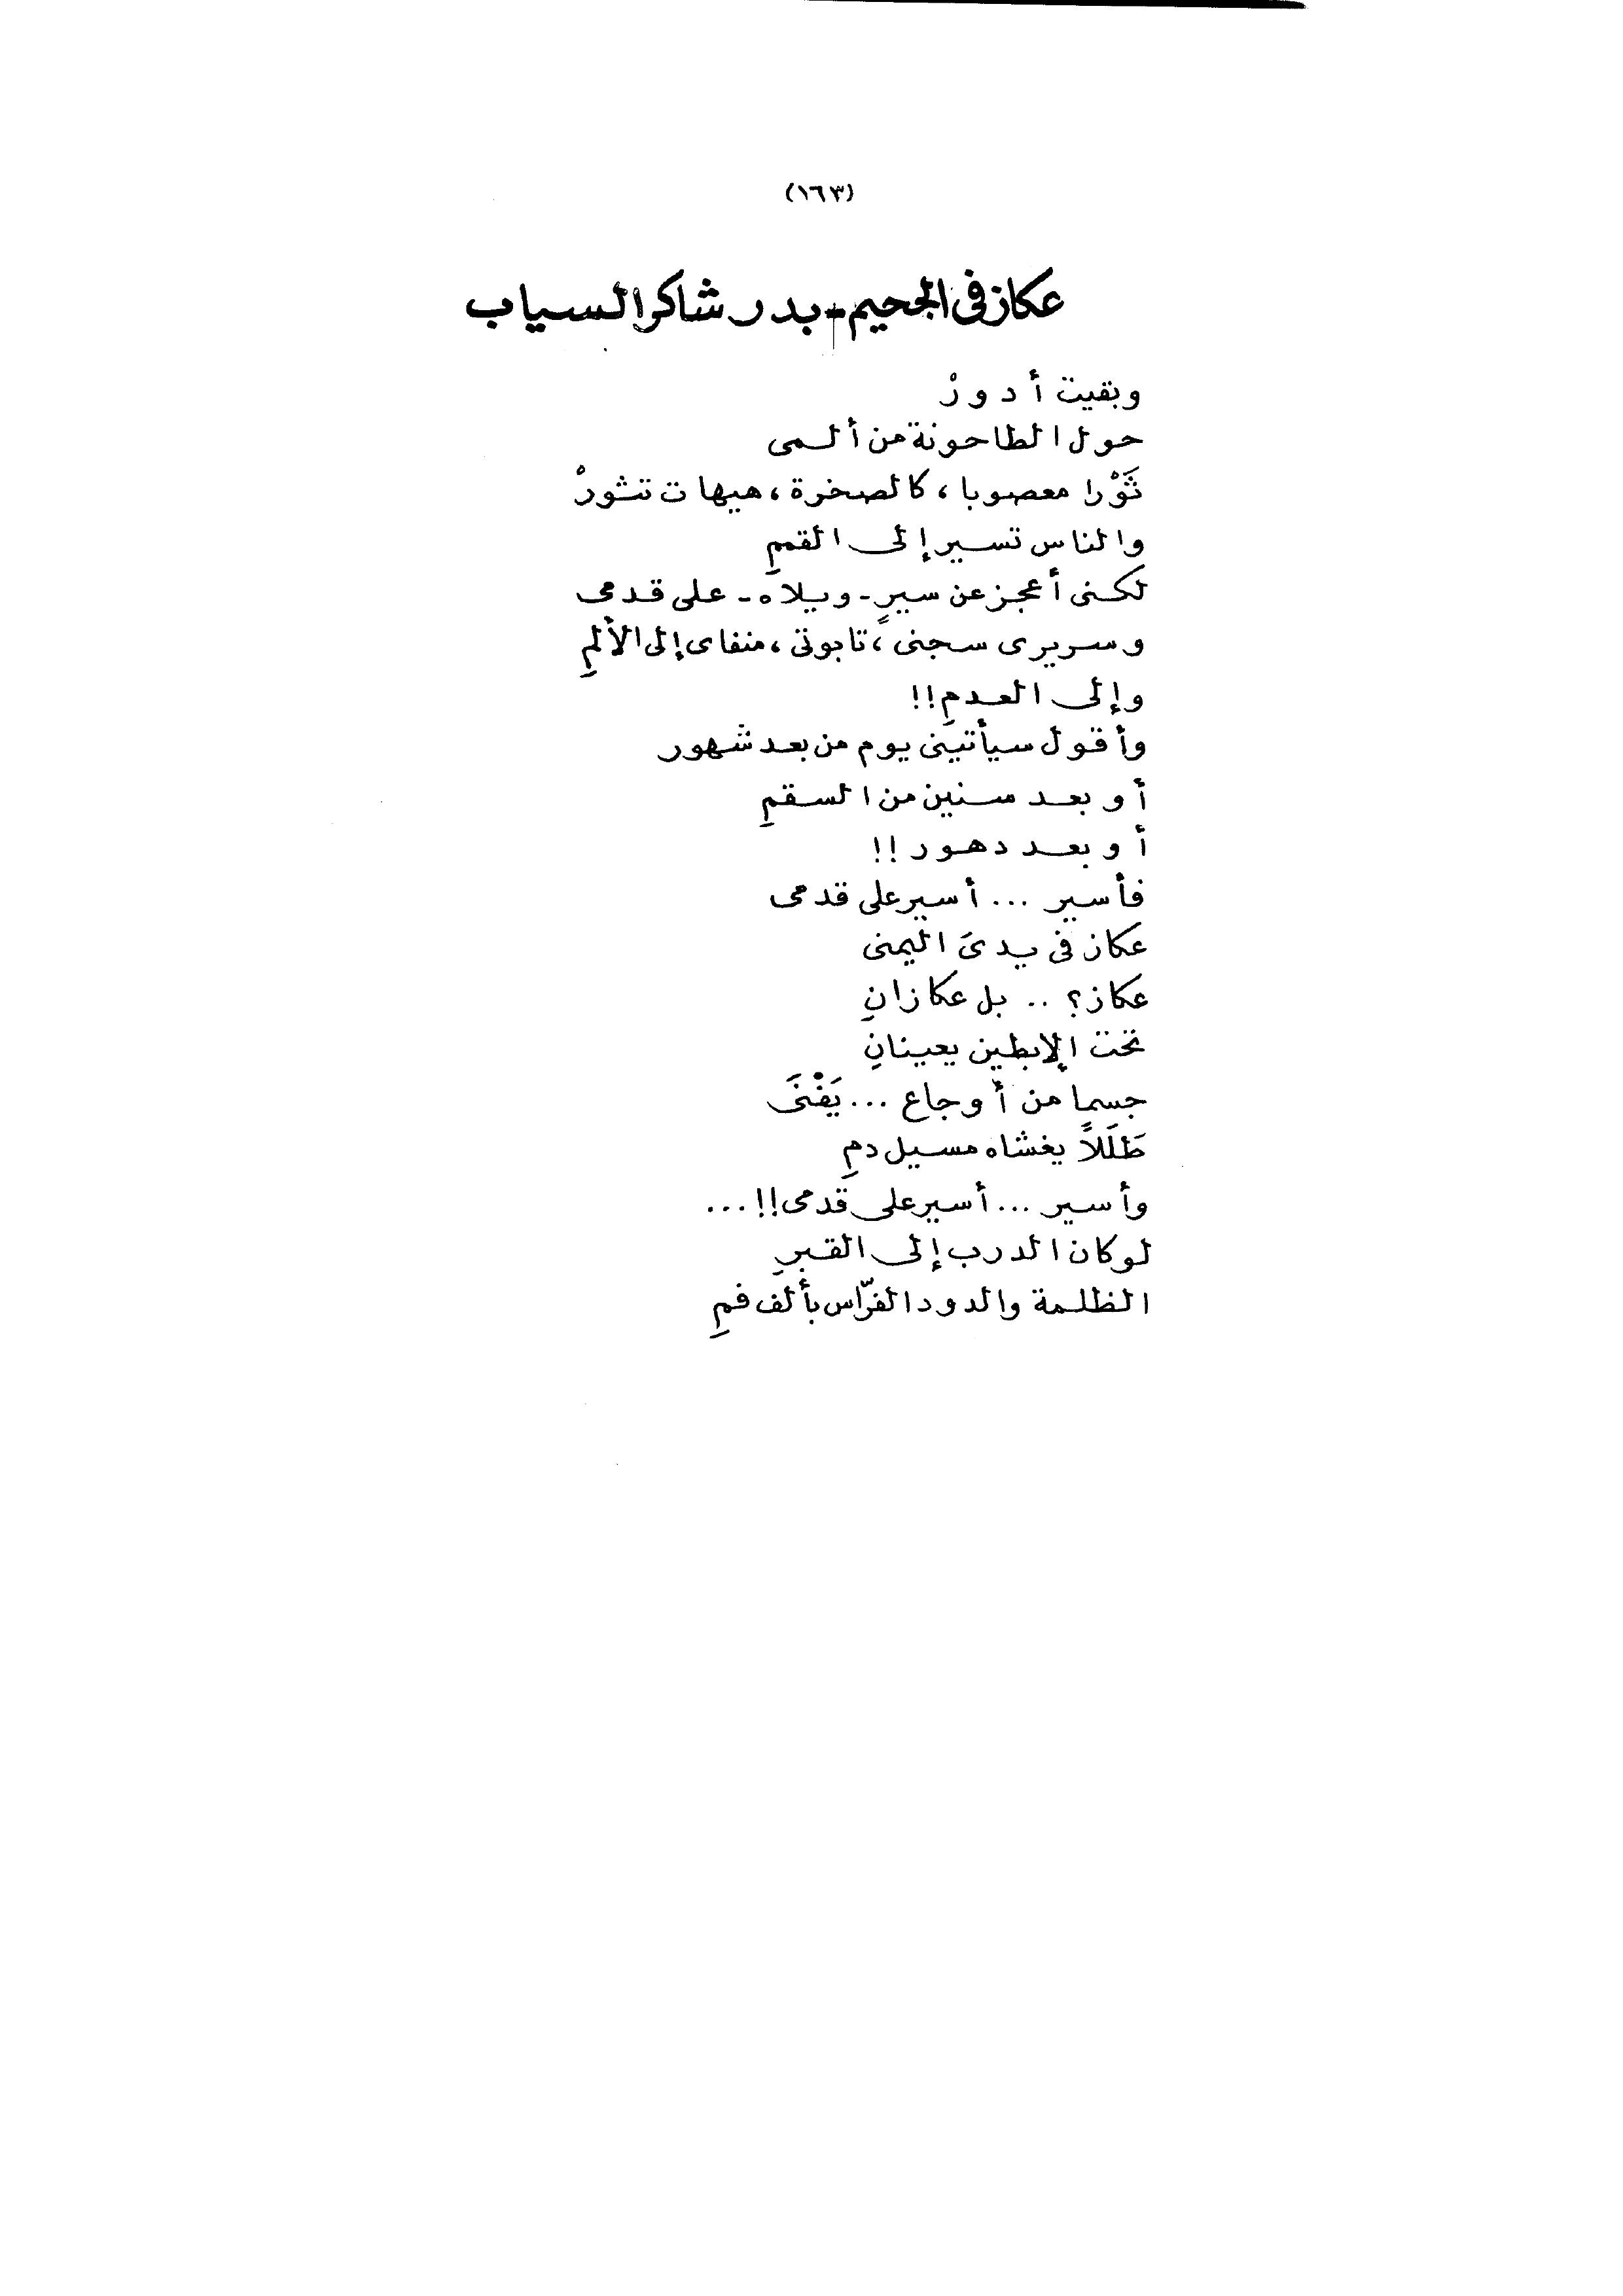 (١٦٣)
عكاز فى الجحيم - بدر شاكر السياب
وبقيت أدورْ
حول الطاحونة من ألمى
ثَوْرا معصوبا، كالصخرة، هيهات تثورْ
والناس تسير إلى القممِ
لكنى أعجز عن سيرٍ - ويلاه - على قدمى
وسريرى سجنى، تابوتى، منفاى إلى الألمِ
وإلى العدمِ!!
وأقول سيأتينى يوم من بعد شهور
أو بعد سنين من السقمِ
أو بعد دهور!!
فأسير ... أسير على قدمى
عكاز فى يدىَ اليمنى
عكاز؟ .. بل عكازانِ
تحت الإبطين يعينانِ
جسما من أوجاع ... يَفْنَى
طَلَلاً يغشاه مسيل دمِ
وأسير ... أسير على قدمى!! ...
لو كان الدرب إلى القبرِ
الظلمة والدود الفرّاس بألف فمِ